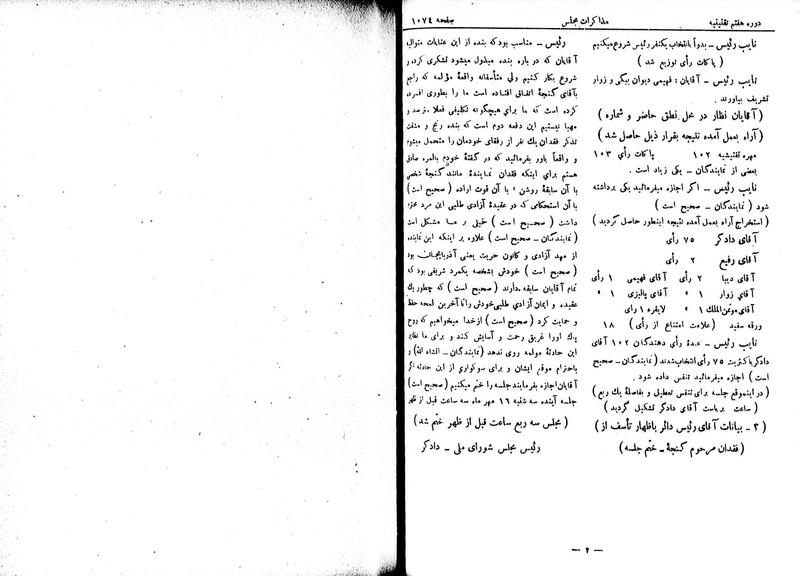 دوره هفتم تقنینیه
مذاکرات مجلس
صفحه ۱۰۷٤
نایب رئیس ــ بدواً بانتخاب یکنفر رئیس شروع میکنیم
( پاکات رأی توزیع شد )
نایب رئیس ــ آقایان : فهیمی دیوان بیگی و زوار
تشریف بیاورند .
( آقایان نظار در محل نطق حاضر و شماره )
( آراء بعمل آمده نتیجه بقرار ذیل حاصل شد )
مهره تفتیشیه ۱۰۲ پاکات رأی ۱۰۳
بعضی از نمایندگان ــ یکی زیاد است .
نایب رئیس ــ اگر اجازه میفرمائید یکی برداشته
شود ( نمایندگان ــ صحیح است )
( استخراج آراء بعمل آمده نتیجه اینطور حاصل گردید )
آقای دادگر ۷۵ رأی
آقای رفیع ۲ رأی
آقای دیبا ۲ رأی آقای فهیمی ۱ رأی
آقای زوار ۱ » آقای پالیزی ۱ »
آقای مؤتمن الملك ۱ » لایقره ۱ رای
ورقه سفید ( علامت امتناع از رأی ) ۱۸
نایب رئیس ــ عدۀ رأی دهندگان ۱۰۲ آقای
دادگر باکثریت ۷۵ رأی انتخاب شدند ( نمایندگان ــ صحیح
است ) اجازه میفرمائید تنفس داده شود .
( در اینموقع جلسه برای تنفس تعطیل و بفاصلۀ یك ربع )
( ساعت بریاست آقای دادگر تشکیل گردید )
( ۳ ــ بیانات آقای رئیس دائر باظهار تأسف از )
( فقدان مرحوم گنجۀ ــ ختم جلسه )
رئیس ــ مناسب بود که بنده از این عنایات متوالیه
آقایان که در باره بنده مبذول میشود تشکری کرده و
شروع بکار کنیم ولی متأسفانه واقعۀ مؤلمه که راجع
بآقای گنجۀ اتفاق افتاده است ما را بطوری افسرده
کرده است که ما برای هیچگونه تکلیفی فعلا مرصد و
مهیا نیستیم این دفعه دوم است که بنده رنج و مشقت
تذکر فقدان یك نفر از رفقای خودمان را متحمل میشوم
و واقعاً باور بفرمائید که در گفتۀ خودم بالمره صادق
هستم برای اینکه فقدان نمایندۀ مانند گنجۀ شخصی
با آن سابقۀ روشن ، با آن قوت اراده ( صحیح است )
با آن استحکامی که در عقیدۀ آزادی طلبی این مرد عزیز
داشت ( صحیح است ) خیلی بر ما مشکل است
( نمایندگان ــ صحیح است ) علاوه بر اینکه این نماینده
از مهد آزادی و کانون حریت یعنی آذربایجان بود
( صحیح است ) خودش بشخصه یکمرد شریفی بود که
تمام آقایان سابقه دارند ( صحیح است ) که چطور یك
عقیده و ایمان آزادی طلبی خودش را تا آخرین لمحه حفظ
و حمایت کرد ( صحیح است ) از خدا میخواهیم که روح
پاك اورا غریق رحمت و آسایش کنند و برای ما نظایر
این حادثۀ مولمه روی ندهد ( نمایندگان ــ انشاء الله ) و
باحترام موقع ایشان و برای سوگواری از این حادثه اگر
آقایان اجازه بفرمایند جلسه را ختم میکنیم ( صحیح است )
جلسه آینده سه شنبه ۱٦ مهر ماه سه ساعت قبل از ظهر
( مجلس سه ربع ساعت قبل از ظهر ختم شد )
رئیس مجلس شورای ملی ــ دادگر
ــ ۲ ــ